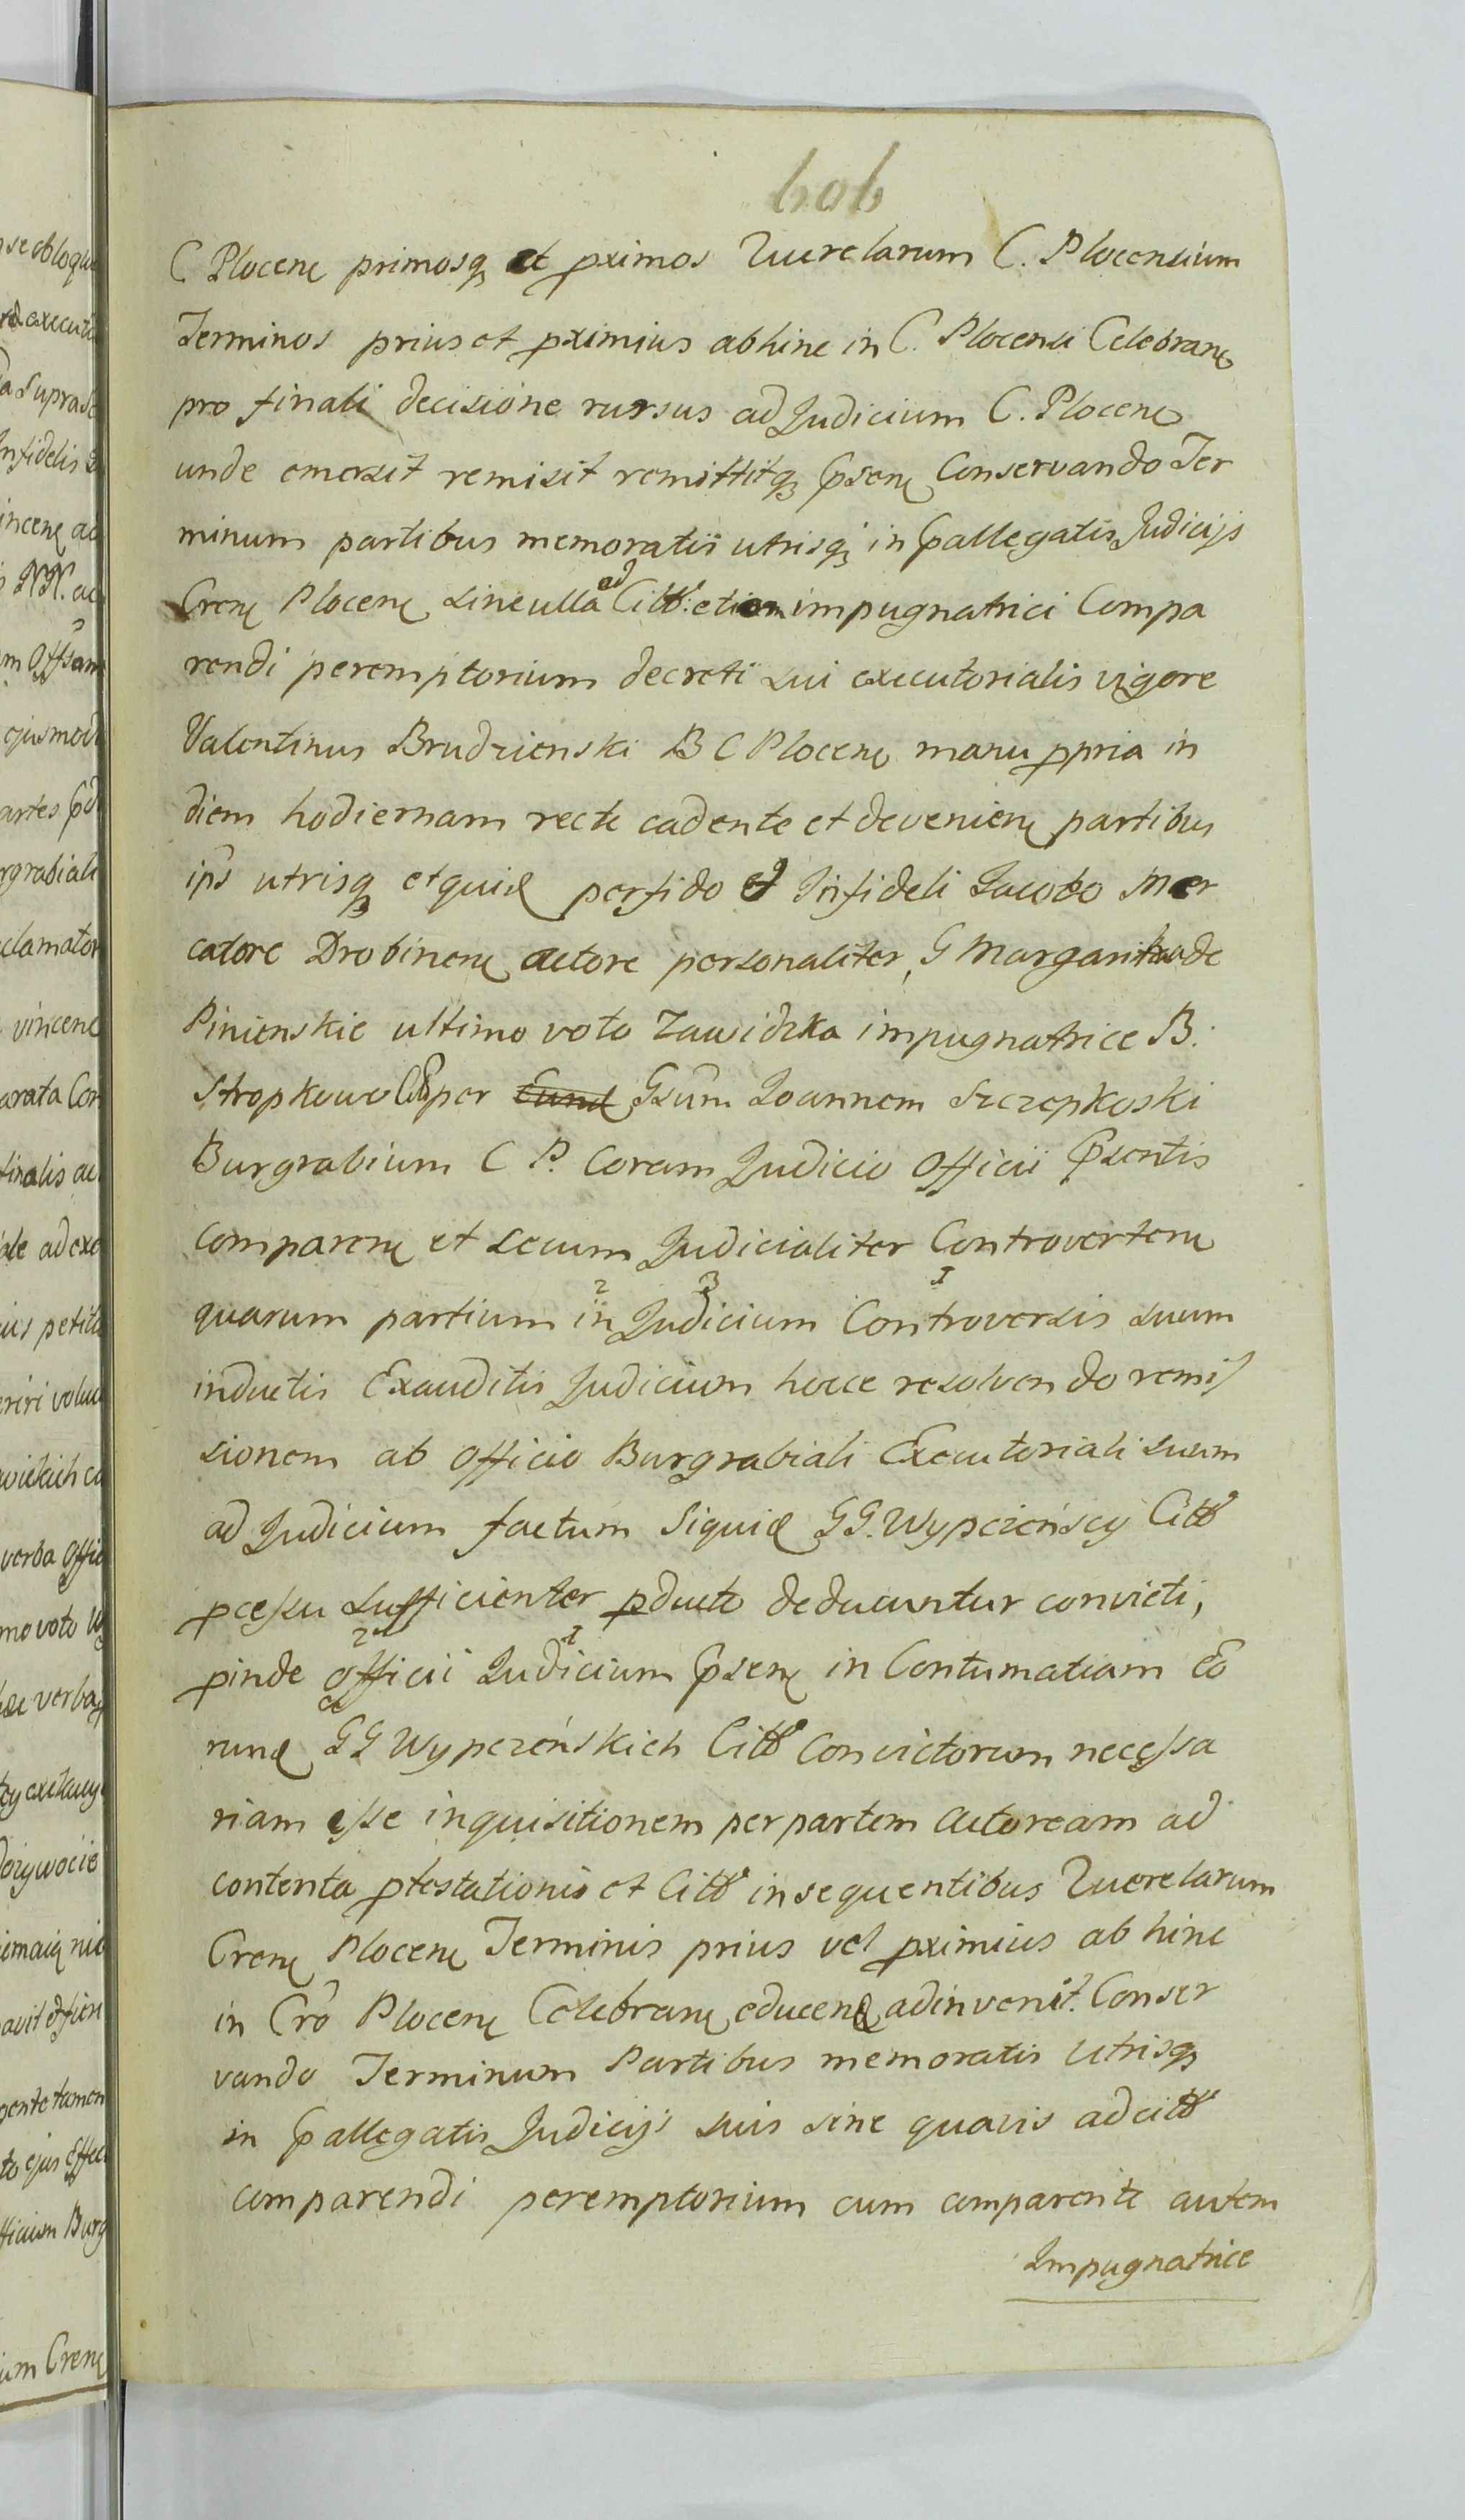 606
C Plocenę primosqꝫ et pximos Querelarum C. Plocensium
Terminos prius et pximius abhinc in C. Plocensi Celebranę
pro finali decisione rursus ad Judicium C. Plocenę
unde emersit remisit remittitqꝫ Psenę Conservando Ter
minum partibus memoratis utrisqꝫ in Pallegatis Judicijs
Crenę Plocenę sine ulla ad Citt: etiam impugnatrici Compa
rendi peremptorium decreti sui executorialis vigore
Valentinus Brudzienski B C Plocenę manu ppria in
diem hodiernam recte cadente et devenienę partibus
ips utrisqꝫ et quid perfido et Infideli Jacobo Mer
catore Drobinenę actore personaliter, G Margaritha de
Pinienskie ultimo voto Zawidzka impugnatrice B.
Stropkowo Citt per Eund Gsum Joannem Szczepkoski
Burgrabium C P. Coram Judicio Officii Psentis
comparenę et secum Judicialiter Controvertenę
quarum partium in 2 Judicium 3 Controversis 1 suum
inductis Exauditis Judicium hocce resolvendo remis
sionem ab Officio Burgrabiali Executoriali suum
ad Judicium factum Siquid GG. Wypczeńscy Citt
pcessu sufficienter pducto deducuntur convicti,
pinde Officii 2 Judicium 1 Psenę in Contumatiam Eo
rund GG Wypczeńskich Citt Convictorum necessa
riam esse inquisitionem per partem Actoream ad
contenta ptestationis et Citt insequentibus Querelarum
Crenę Plocenę Terminis prius vel pximius ab hinc
in Cro Plocenę Celebranę educend adinvenit. Conser
vando Terminum Partibus memoratis Utrisqꝫ
in Pallegatis Judicijs suis sine quavis adcitt
comparendi peremptorium cum comparente autem
Impugnatrice